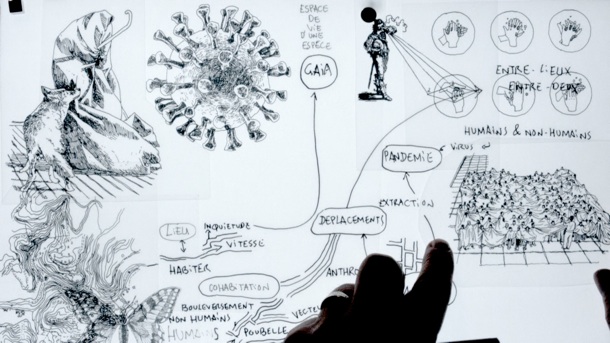 ESPACE
DE
VIE
D'UNE
ESPÈCE
GAÏA
ENTRE-LIEUX
ENTRE-DEUX
HUMAINS & NON-HUMAINS
VIRUS
PANDEMIE
EXTRACTION
DEPLACEMENTS
LIEU
INQUIETUDE
VITESSE
HABITER
COHABITATION
ANTHRO
BOULEVERSEMENT
NON HUMAINS
VECTE
HUMA S
POUBELLE